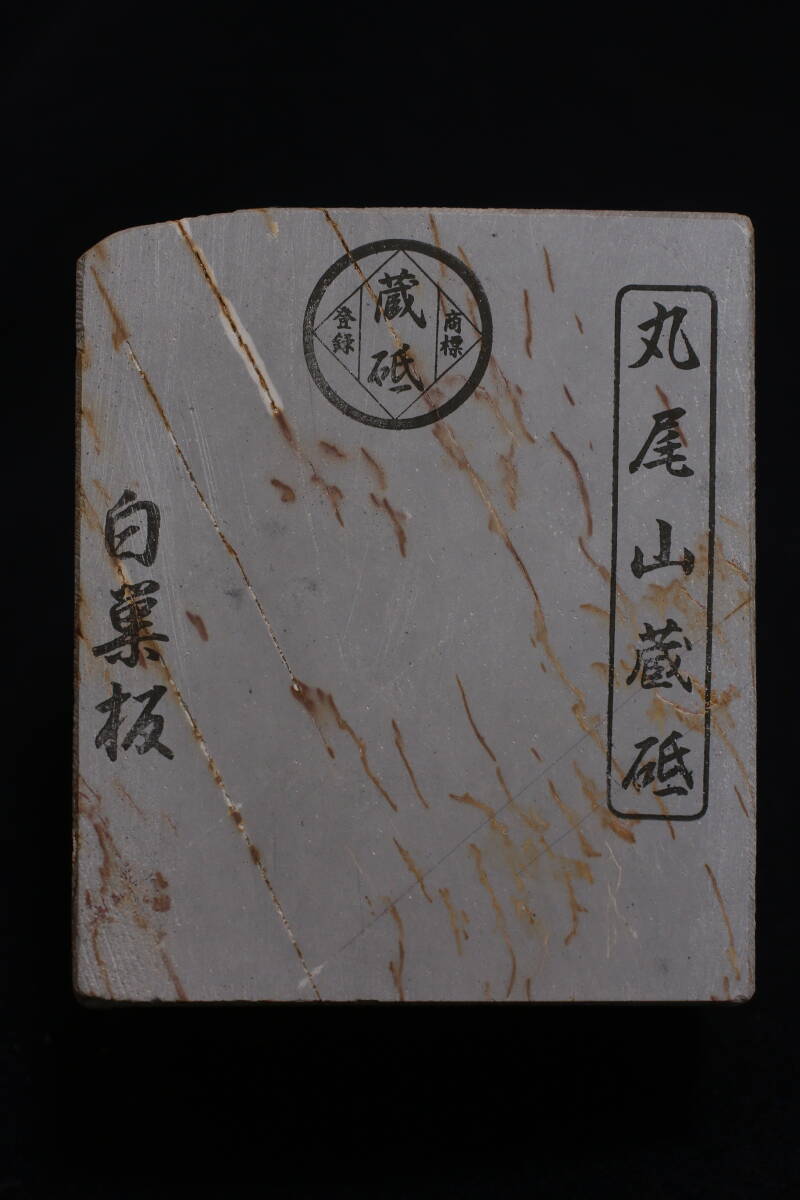 丸尾山蔵砥
商標
蔵砥
登録
白巣板